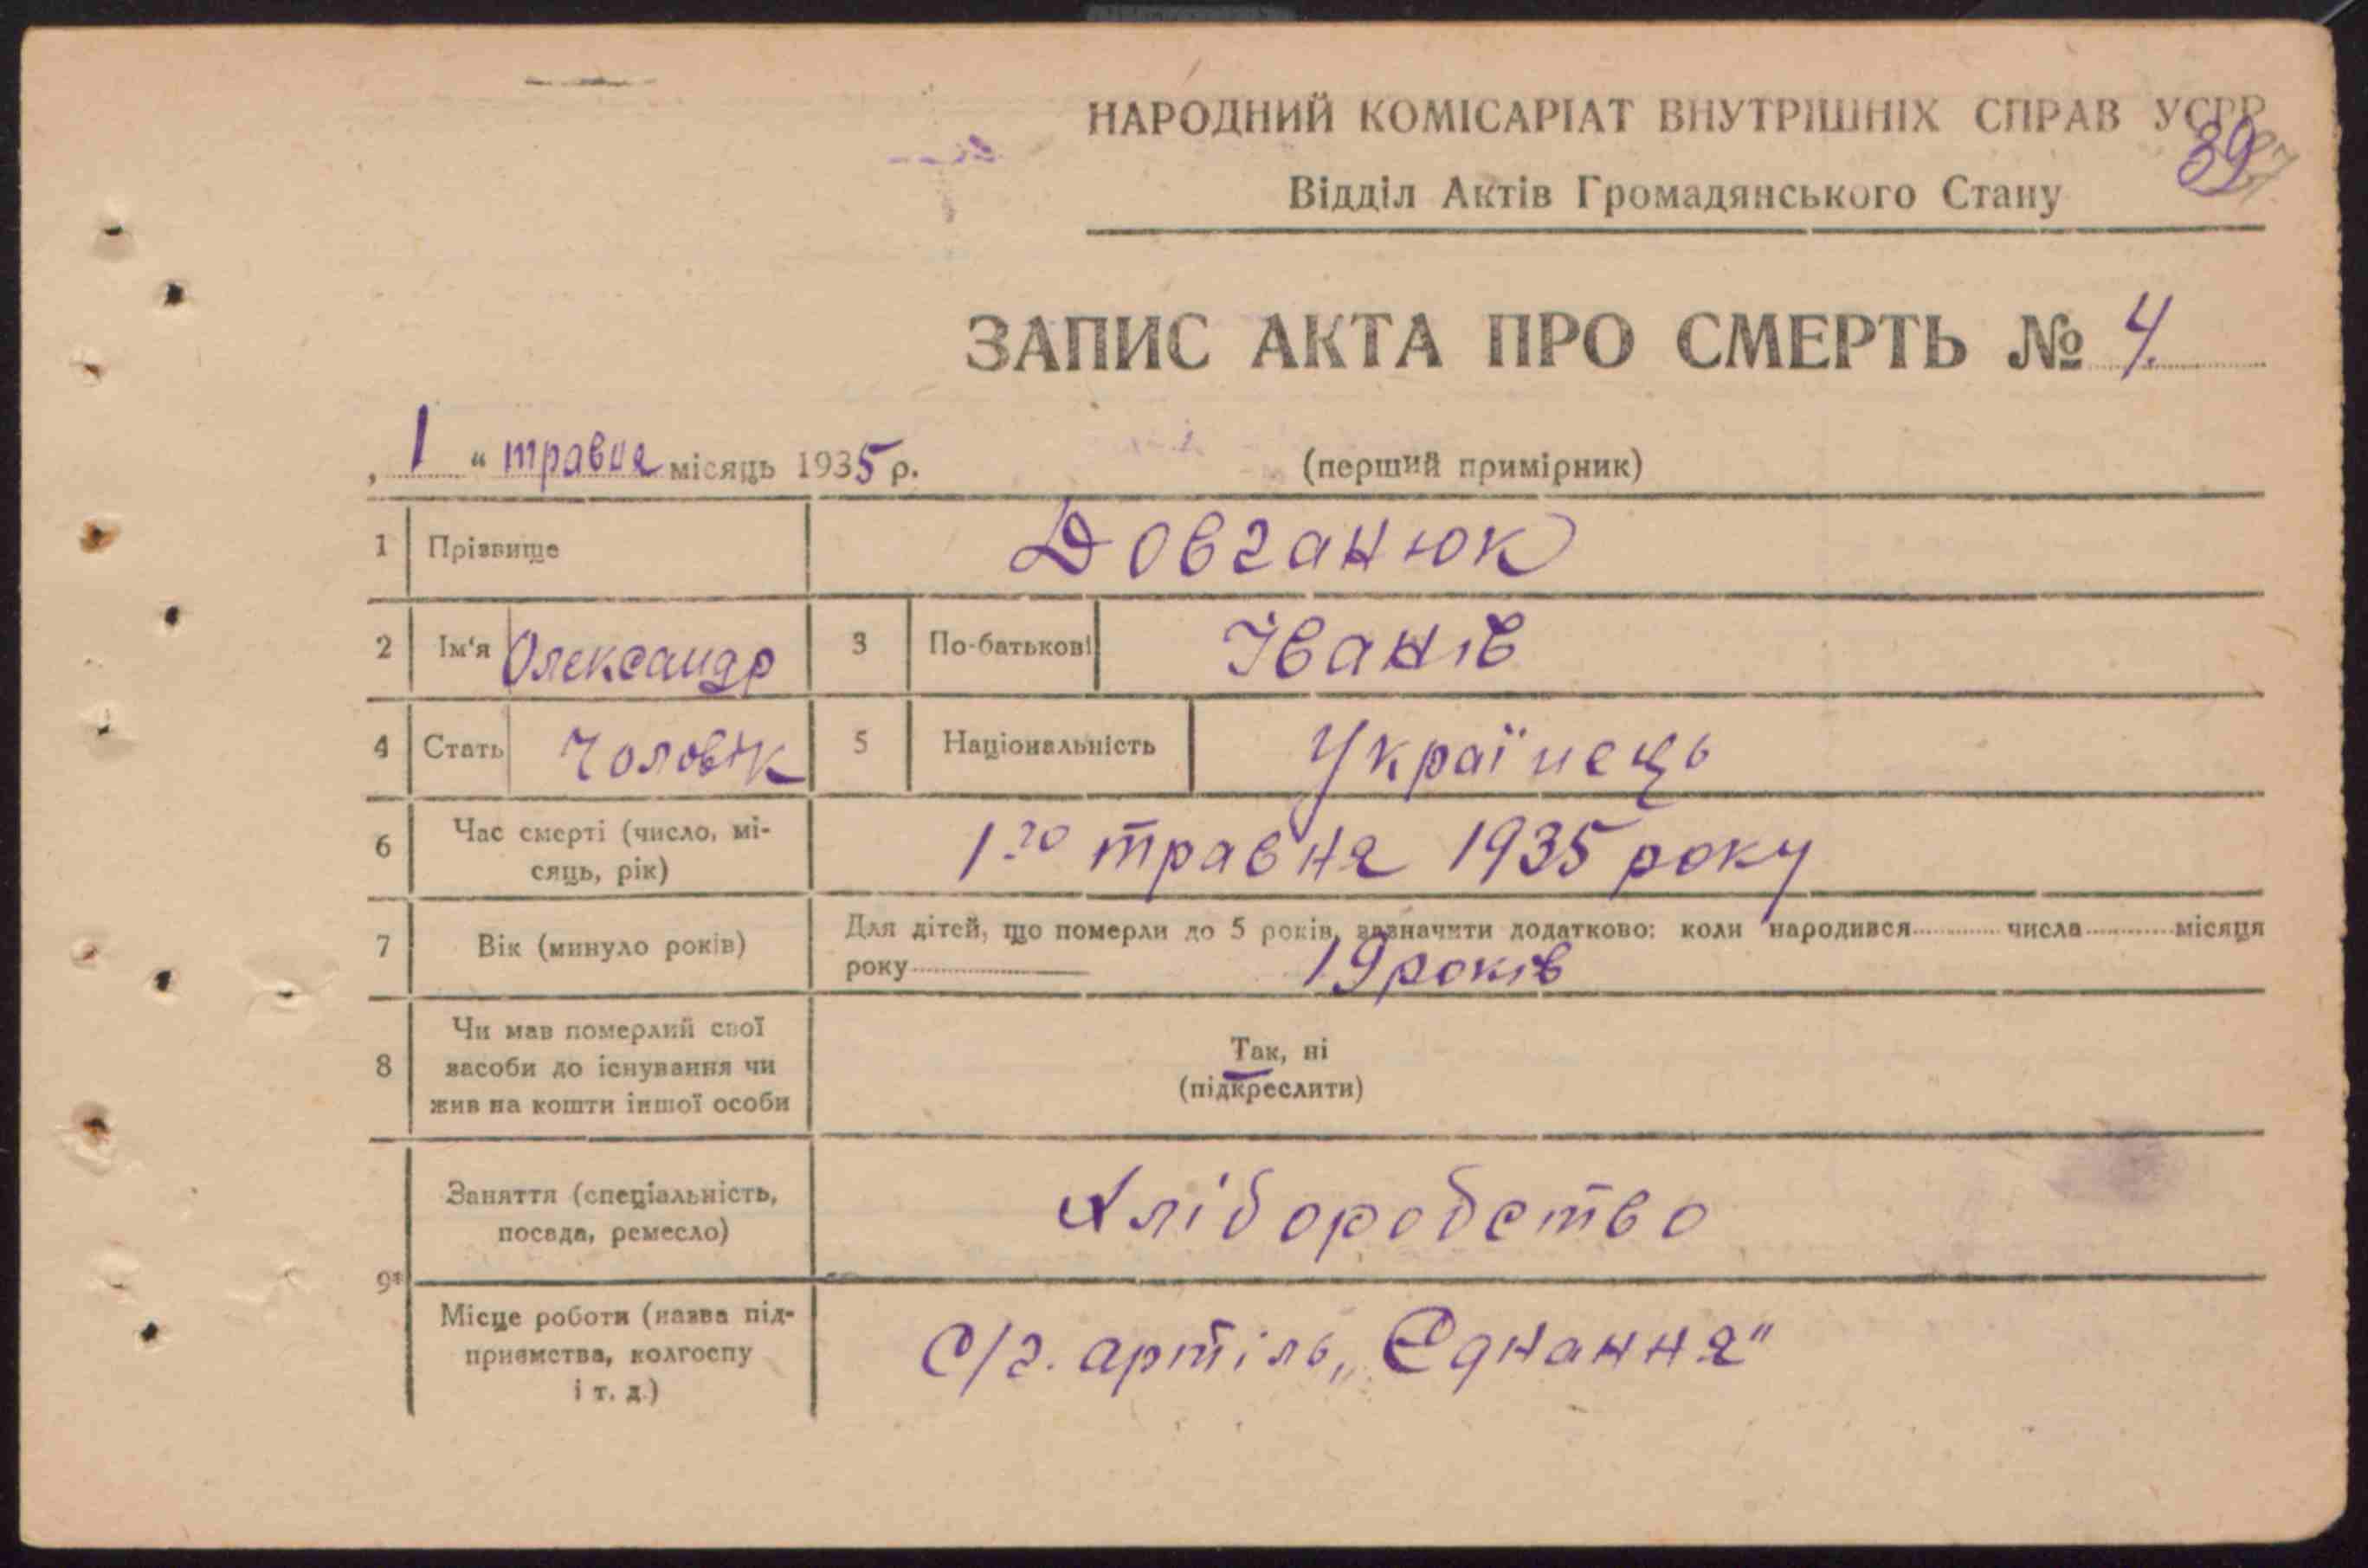 НАРОДНИЙ КОМІСАРІАТ ВНУТРІШНІХ СПРАВ УСРР
39
Відділ Актів Громадянського Стану
ЗАПИС АКТА ПРО СМЕРТЬ № 4.
„ 1 “ травня місяць 1935 р.
(перший примірник)
1 Прізвище Довганюк
2 Ім'я Олександр 3 По-батькові Іванів
4 Стать Чоловік 5 Національність Українець
6 Час смерті (число, мі-
сяць, рік) 1го травня 1935 року
7 Вік (минуло років) Для дітей, що померли до 5 років, зазначити додатково: коли народився числа місяця
року 19 років
8 Чи мав померлий свої
засоби до існування чи
жив на кошти іншої особи
Так, ні
(підкреслити)
9*
Заняття (спеціальність,
посада, ремесло) Хліборобство
Місце роботи (назва під-
приємства, колгоспу
і т. д.) С/г. артіль „Єднання"